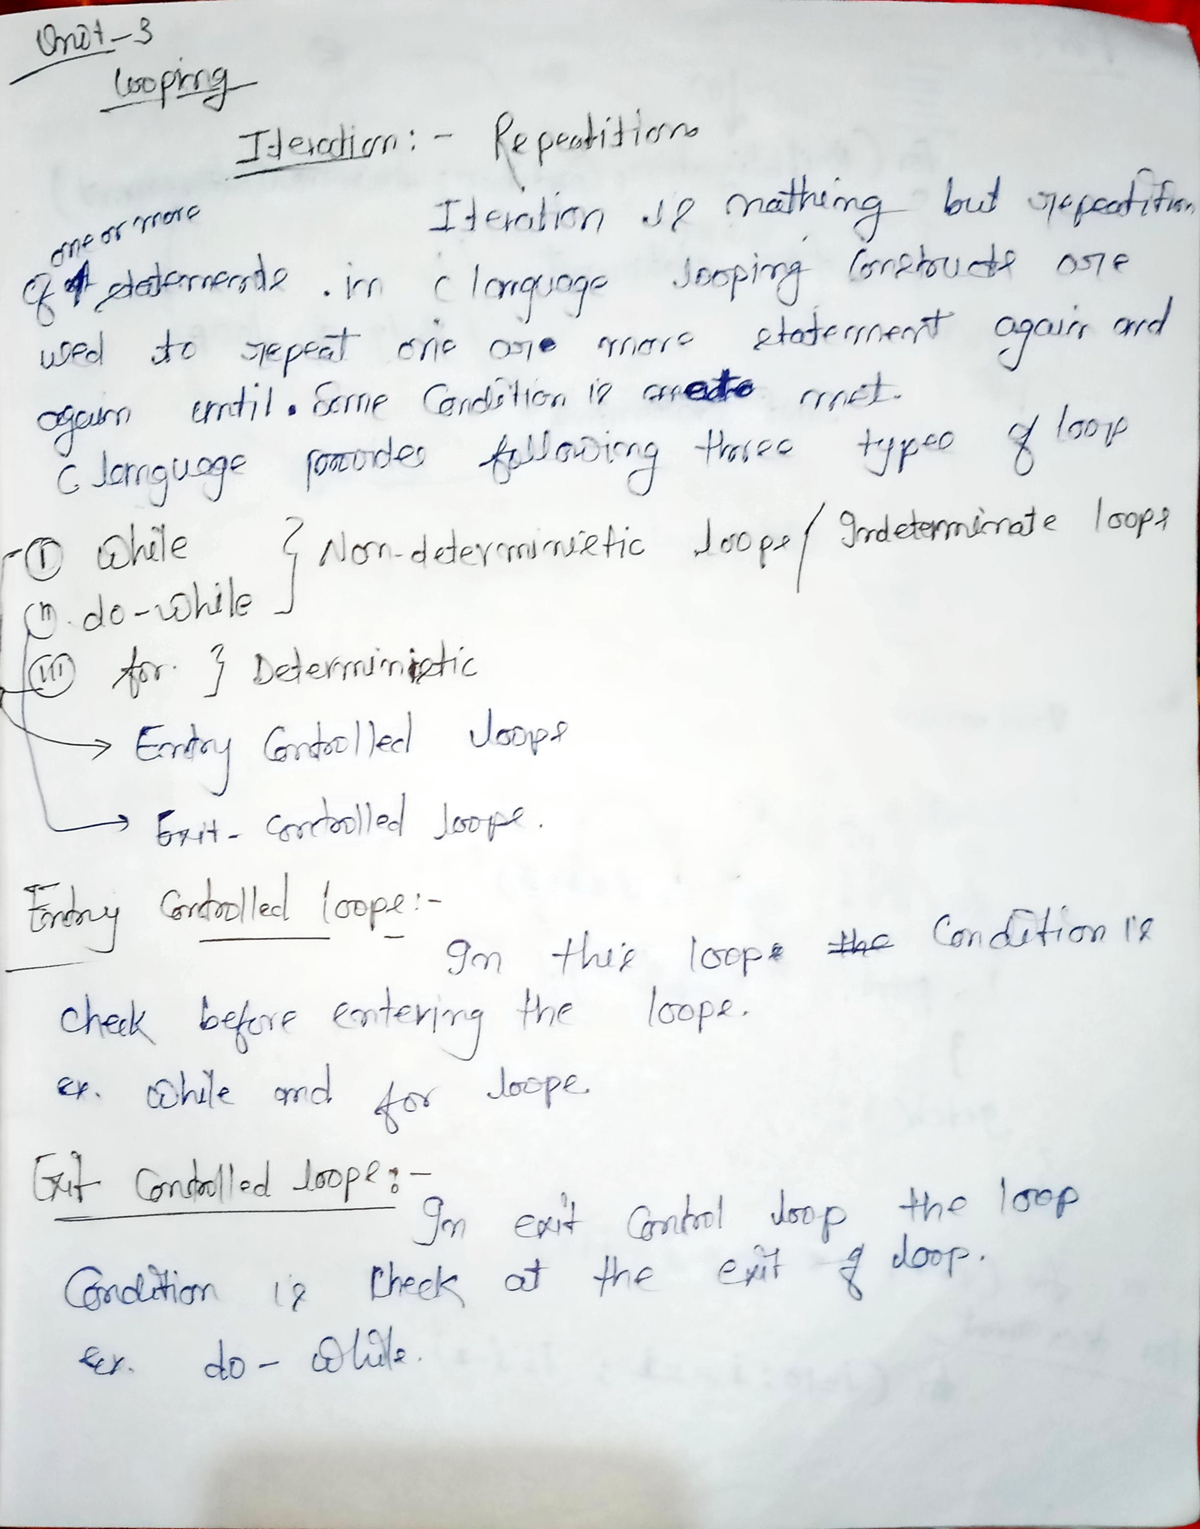 Unit-3
Looping
Iteration:- Repeatition
Iteration is nathing but repeatition
one or more
of statements. in c language looping constructs are
used to repeat one are more statement again and
again until. Some Condition is met.
c language provides following three types of loop
(i) While } Non-deterministic loops / Indeterminate loops
(ii). do-while
(iii) for. } Deterministic
Entry Controlled loops
Exit- controlled loops.
Entry Controlled loops:-
In this loops the Condition is
check before entering the loops.
ex. While and for loops.
Exit Controlled loops:-
In exit Control loop the loop
Condition is check at the exit of loop.
ex. do-while.